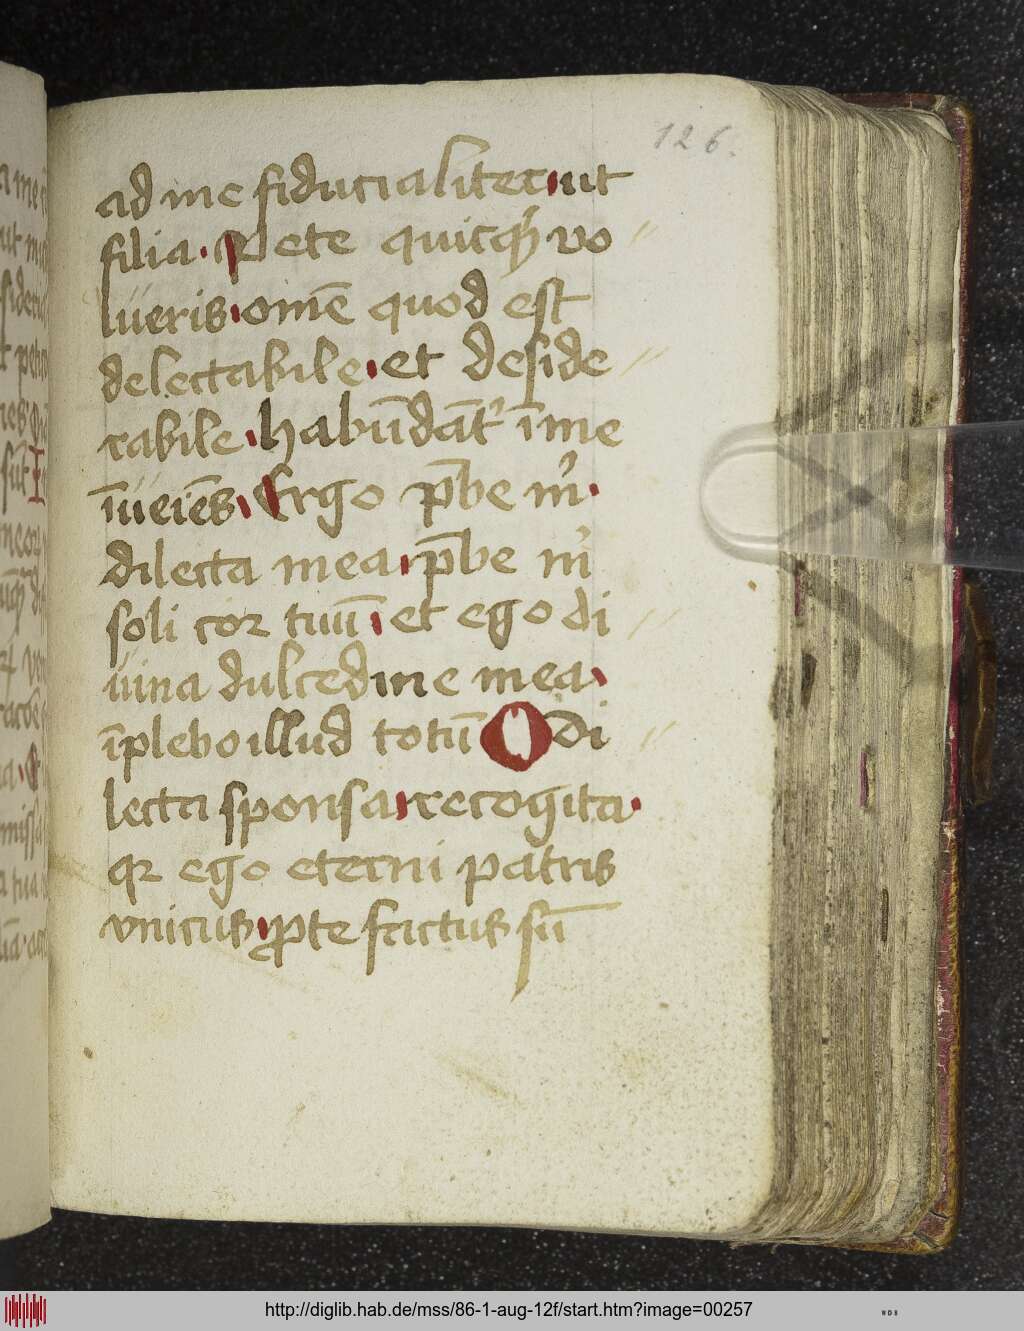 126.
ad me fiducialiter ut
filia. Pete quicq̄ȝ vo
lueris. omē quod est
delectabile. et deside
rabile. habūdāt̉ ī me
īueiēs. Ergo p̄be m̉.
dilecta mea. p̄be m̉
soli cor tuū. et ego di
uina dulcedine mea.
īplebo illud totū O di
lecta sponsa. recogita.
qꝛ ego eterni patris
vnicus. ꝓ te factus sū
http://diglib.hab.de/mss/86-1-aug-12f/start.htm?image=00257